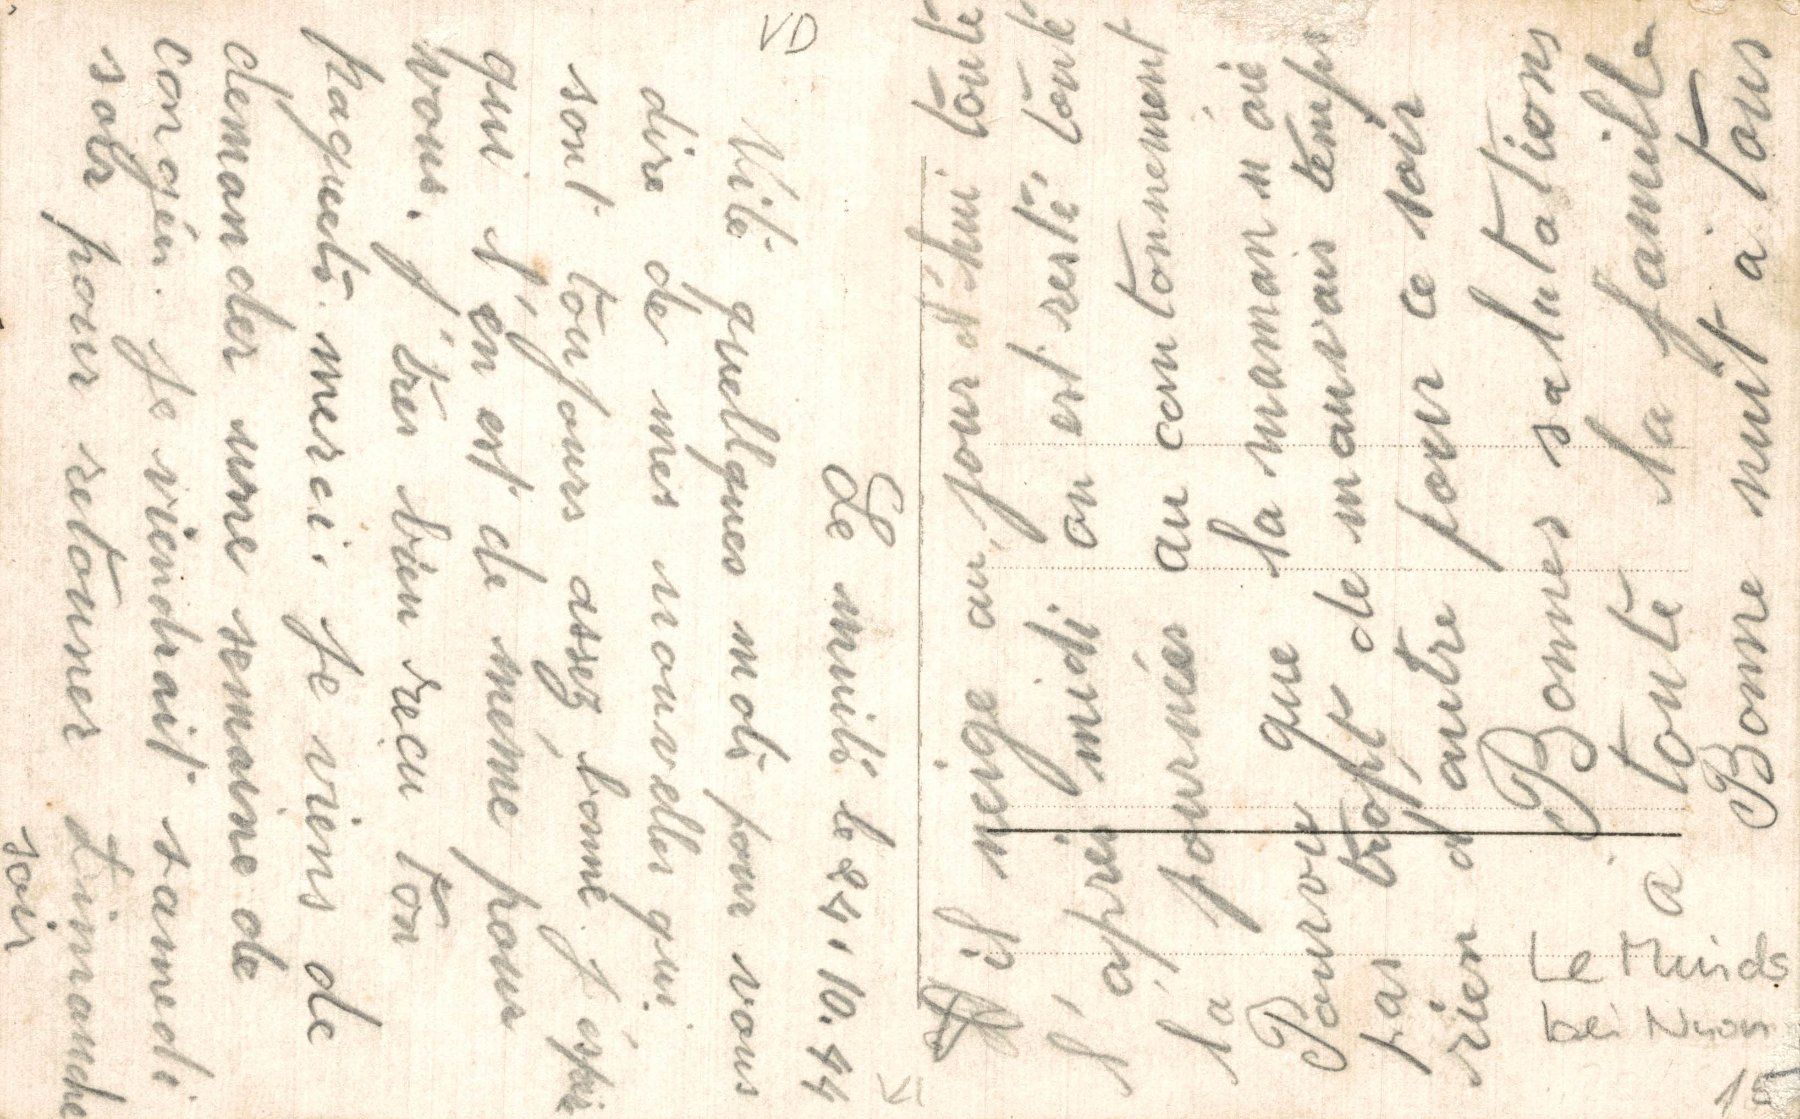 Le muids le 24.10.44
Vite quellques mots pour vous
dire de mes nouvelles qui
sont toujours assez bonne j'éspère
qui s'en est de même pour
vous. j'ter bien recu ton
paquets merci. Je viens de
demander une semaine de
congéu. je viendrait samedi
soir pour retouner Dimanche
soir
il neige au jour d'hui toute
l'apres midi on est resté toute
la journées au cantonnement
Pourvu que la maman n aie
pas tropt de mauvais temps
rien d'autre pour ce soir
Bonnes salutations
à toute la famille
Bonne nuit a tous
VD
Le Muids
bei Nyon
15